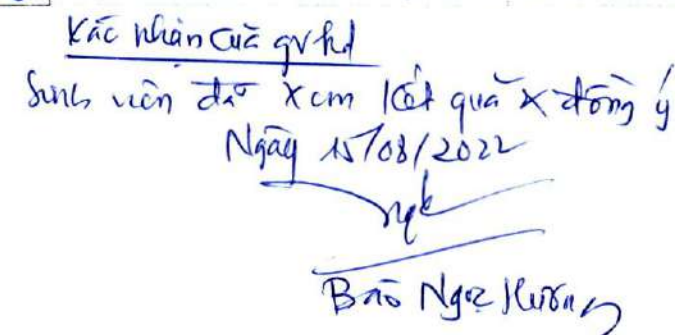 Xác nhận của gvhd
Sinh viên đã xem kết quả & đồng ý
Ngày 15/08/2022
Bảo Ngọc